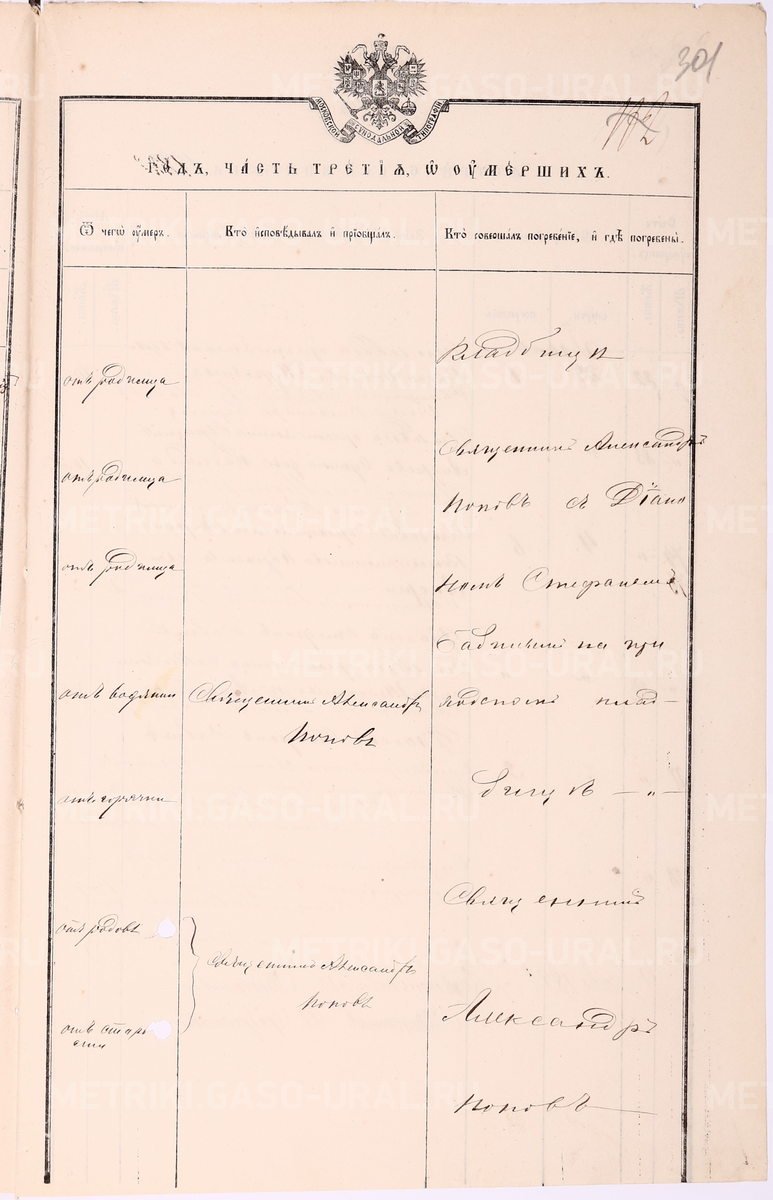 301
112
МОСКОВСКОЙ СѴНОДАЛЬНОЙ ТИПОГРАФІИ
ГОДЪ, ЧАСТЬ ТРЕТІѦ, Ѡ ОУМЕРШИХЪ.
Ѿ чегѡ оумеръ.
Кто исповѣдывалъ и прїобщалъ.
Кто совершалъ погребенїе, и гдѣ погребены.
Кладбищѣ
отъ родимца
Священникъ Александръ
отъ родимца
Поповъ съ Діако
отъ родимца
номъ Стефаномъ
на при
отъ водянки
Священникъ Александръ
ходскомъ клад–
Поповъ
бищѣ – „ –
отъ горячки
Священникъ
отъ родовъ
Священникъ Александръ
Поповъ
Александръ
отъ старо
сти
Поповъ
METRIKI.GASO-URAL.RU